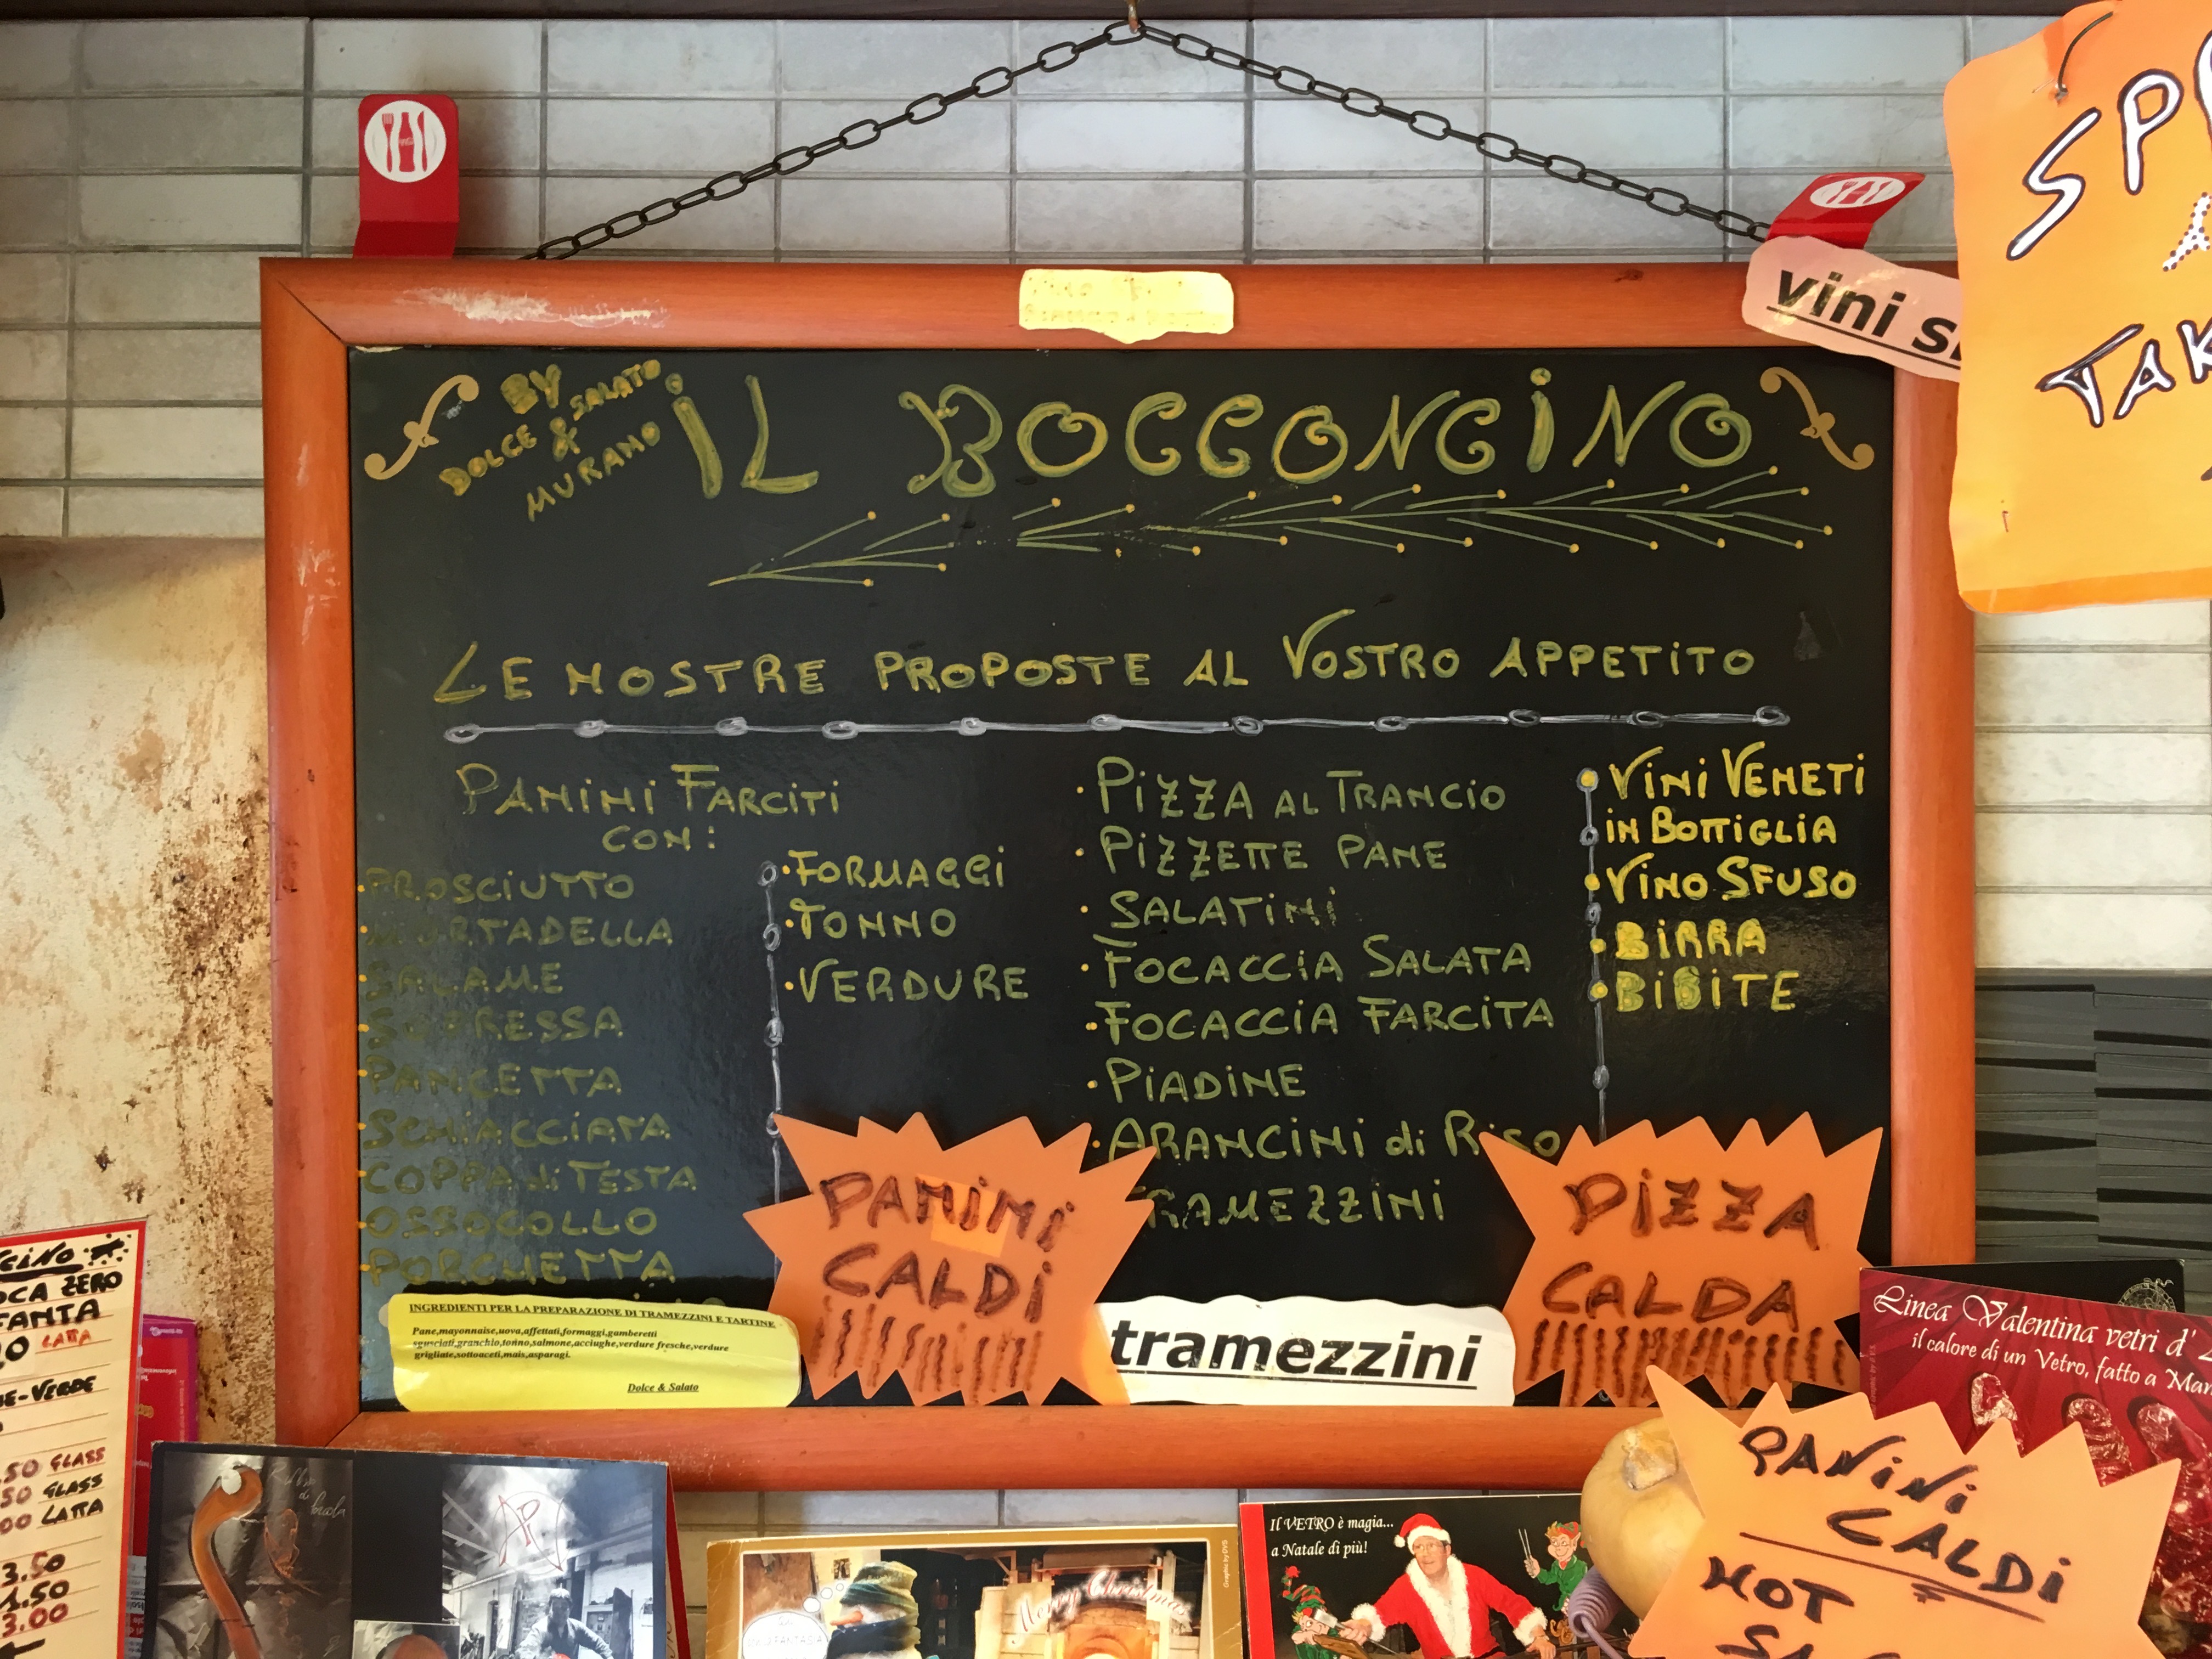 BY
DOLCE & SALATO
MURANO
IL BOCCONCINO
LE NOSTRE PROPOSTE AL VOSTRO APPETITO
PANINI FARCITI
CON:
PROSCIUTTO
MORTADELLA
SALAME
SOPRESSA
PANCETTA
SCHIACCIATA
COPPA di TESTA
OSSOCOLLO
PORCHETTA
FORMAGGI
TONNO
VERDURE
PIZZA AL TRANCIO
PIZZETTE PANE
SALATINI
FOCACCIA SALATA
FOCACCIA FARCITA
PIADINE
ARANCINI di RISO
TRAMEZZINI
VINI VENETI
IN BOTTIGLIA
VINO SFUSO
BIRRA
BIBITE
PANINI
CALDI
PIZZA
CALDA
INGREDIENTI PER LA PREPARAZIONE DI TRAMEZZINI E TARTINE
Pane,mayonnaise,uova,affettati,formaggi,gamberetti
sgusciati,granchio,tonno,salmone,acciughe,verdure fresche,verdure
grigliate,sottoaceti,mais,asparagi.
Dolce & Salato
tramezzini
vini
ZERO
FANTA
LATTA
VERDE
GLASS
GLASS
LATTA
3.50
1.50
3.00
Linea Valentina vetri d'
il calore di un Vetro, fatto a
Merry Christmas
Il VETRO è magia...
a Natale di più!
PANINI
CALDI
HOT